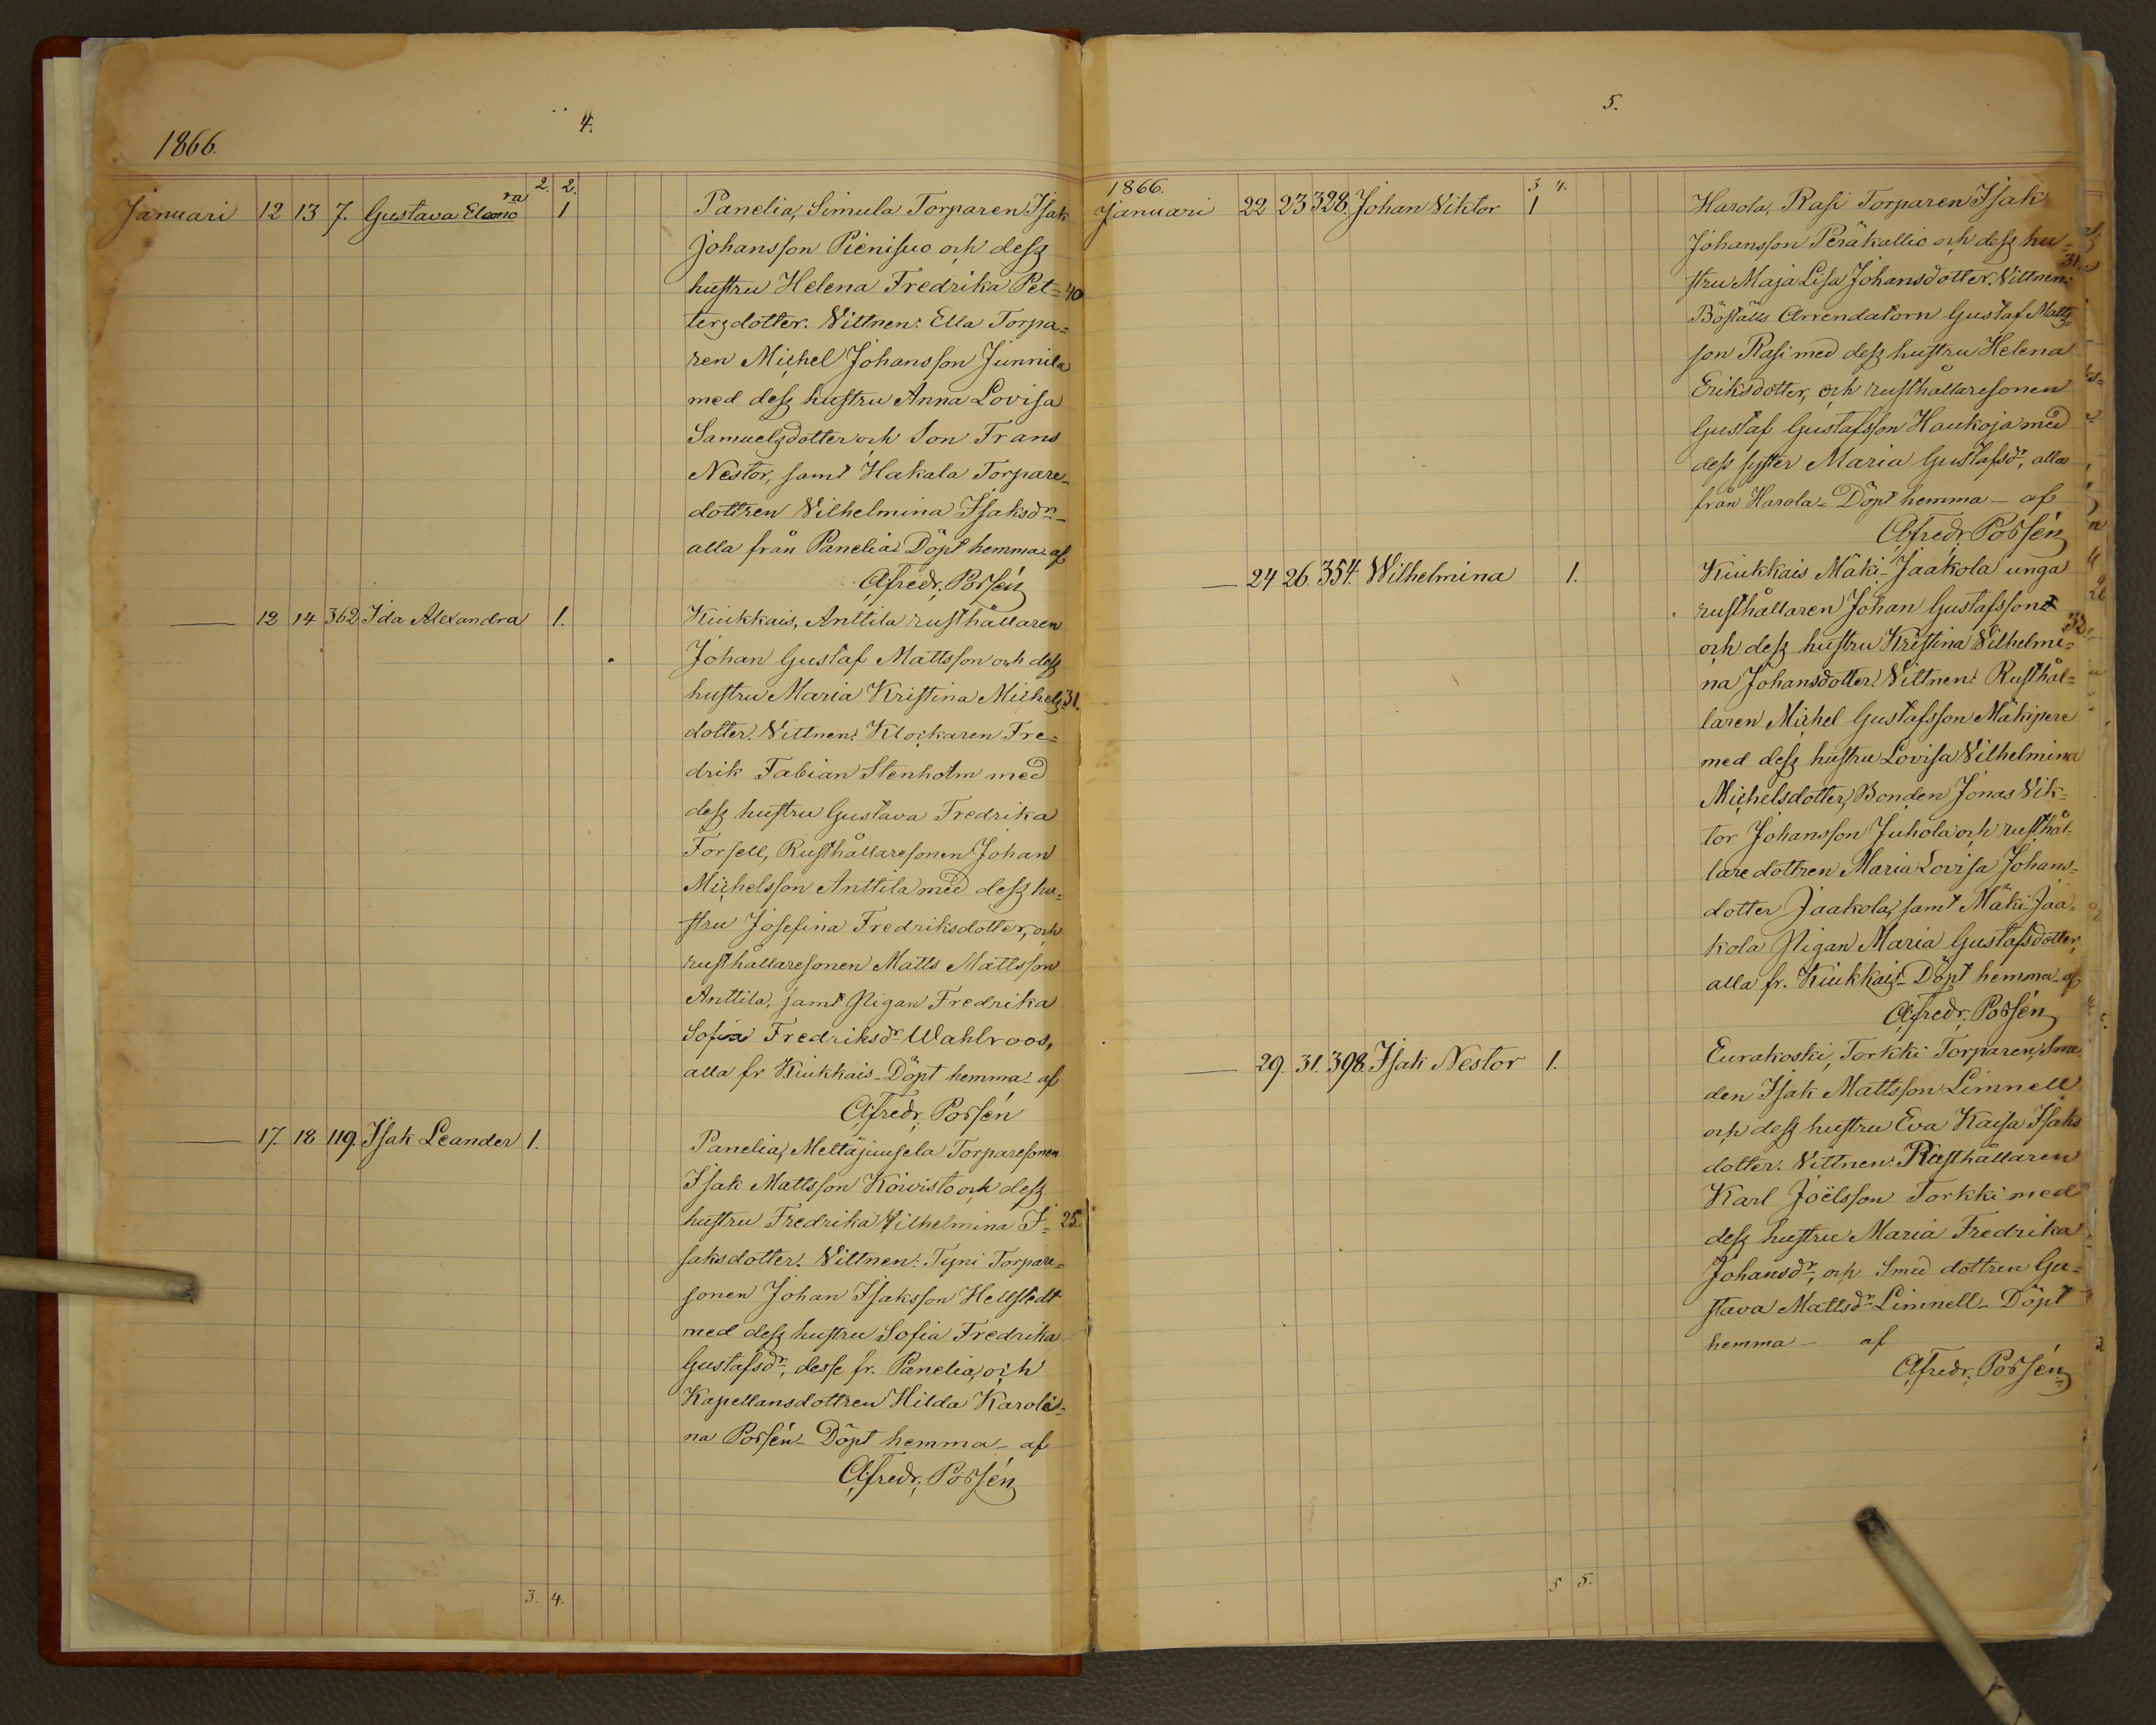 4.
1866.
2. 2.
Januari 12 13 7. Gustava Eleono ra 1 Panelia, Simula Torparen Isak
Johansson Pienisuo och dess
hustru Helena Fredrika Pet= 40
tersdotter. Vittnen: Ella Torpa=
ren Michel Johansson Junnila
med dess hustru Anna Lovisa
Samuelsdotter och Son Frans
Nestor, samt Hakala Torpare-
dottren Vilhelmina Isaksdr
alla från Panelia. Döpt hemma af
Afredr. Possén
— 12 14 362 Ida Alexandra 1. Kiukkais, Anttila rusthållaren
Johan Gustaf Mattsson och dess
hustru Maria Kristina Michels= 31.
dotter. Vittnen: Klockaren Fre=
drik Fabian Stenholm med
dess hustru Gustava Fredrika
Forsell, Rusthållaresonen Johan
Michelsson Anttila med dess hu=
stru Josefina Fredriksdotter, och
rusthållaresonen Matts Mattsson
Anttila, samt Pigan Fredrika
Sofia Fredriksdr Wahlroos,
alla fr Kiukkais – Döpt hemma – af
Afredr. Possén
— 17. 18 119. Isak Leander 1. Panelia, Mettäjuusela Torparesonen
Isak Mattsson Koivisto och dess
hustru Fredrika Vilhelmina I= 25.
saksdotter. Vittnen: Tyni Torpare=
sonen Johan Isaksson Hellstedt
med dess hustru Sofia Fredrika
Gustafsdr, desse fr. Panelia, och
Kapellansdottren Hilda Karoli=
na Possén – Döpt hemma – af
Afredr. Possén
3. 4.
5.
1866. 3 4.
Januari 22 23 328. Johan Viktor 1 Harola, Rasi Torparen Isak
Johansson Peräkallio och dess hu= 31.
stru Maja Lisa Johansdotter. Vittnen:
Böställs Arrendatorn Gustaf Matts=
son Rasi med dess hustru Helena
Eriksdotter, och rusthållaresonen
Gustaf Gustafsson Haukoja med
dess syster Maria Gustafsdr, alla
från Harola – Döpt hemma – af
Afredr. Possén
— 24 26. 354. Wilhelmina 1. Kiukkais Mäki-Jaakola unga
rusthållaren Johan Gustafsson
och dess hustru Kristina Vilhelmi= 32
na Johansdotter. Vittnen: Rusthål=
laren Michel Gustafsson Mäkipere
med dess hustru Lovisa Vilhelmina
Michelsdotter, Bonden Jonas Vik=
tor Johansson Juhola och rusthål-
lare dottren Maria Lovisa Johans=
dotter Jaakola, samt Mäki-Jaa=
kola Pigan Maria Gustafsdotter,
alla fr. Kiukkais – Döpt hemma – af
Afredr. Possén
— 29. 31. 398. Isak Nestor 1. Eurakoski, Torkki Torparen, Sme
den Isak Mattsson Limnell
och dess hustru Eva Kaisa Isaks
dotter. Vittnen: Rusthållaren
Karl Joëlsson Torkki med
dess hustru Maria Fredrika
Johansdr, och Smed dottren Gu=
stava Mattsdr Limnell – Döpt
hemma – af
Afredr. Possén
5 5.